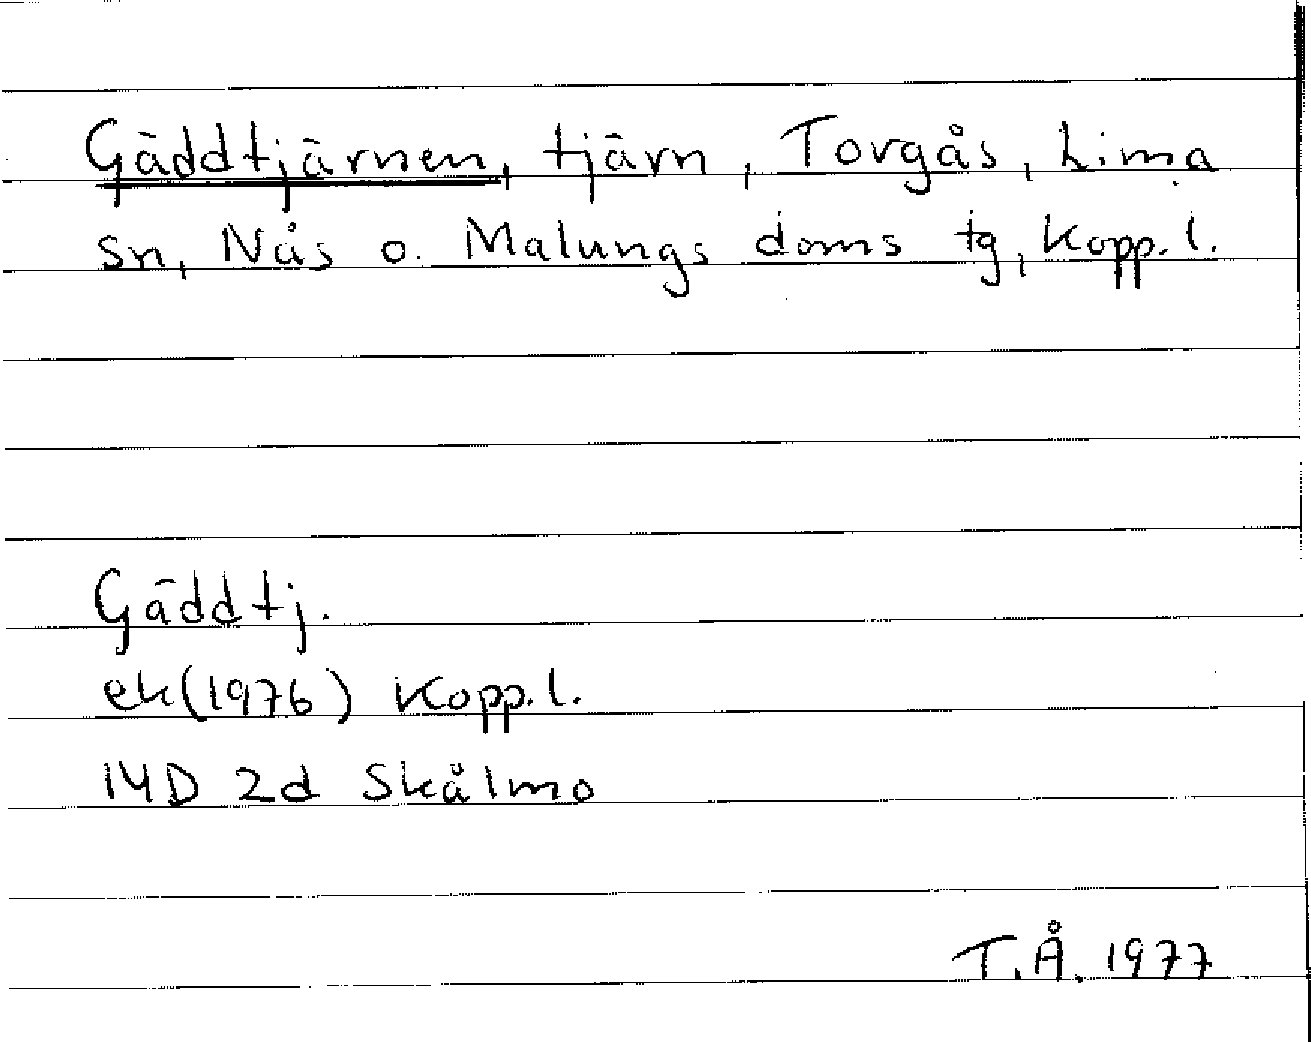 Gäddtjärnen, tjärn, Torgås, Lima
sn, Nås o. Malungs doms tg, Kopp. l.
Gäddtj.
ek(1976) Kopp. l.
14D 2d Skålmo
T.Å. 1977